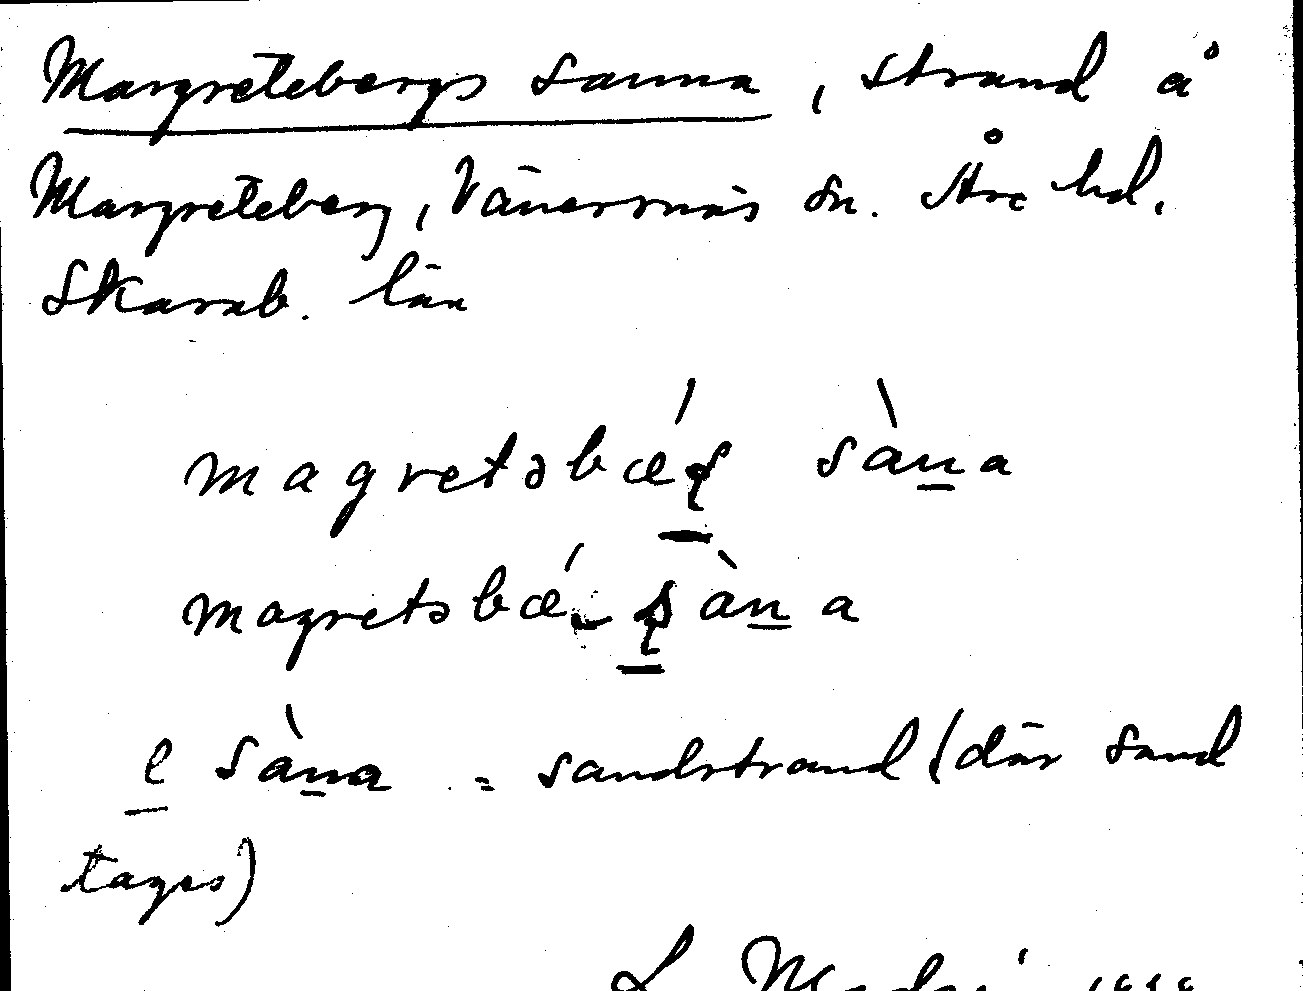 Margretebergs sanna, strand å
Margreteberg, Vänersnäs sn. Åse hd.
Skarab. län
magretəbǽʂ sàna
magretəbǽ ʂàna
e sàna = sandstrand (där sand
tages)